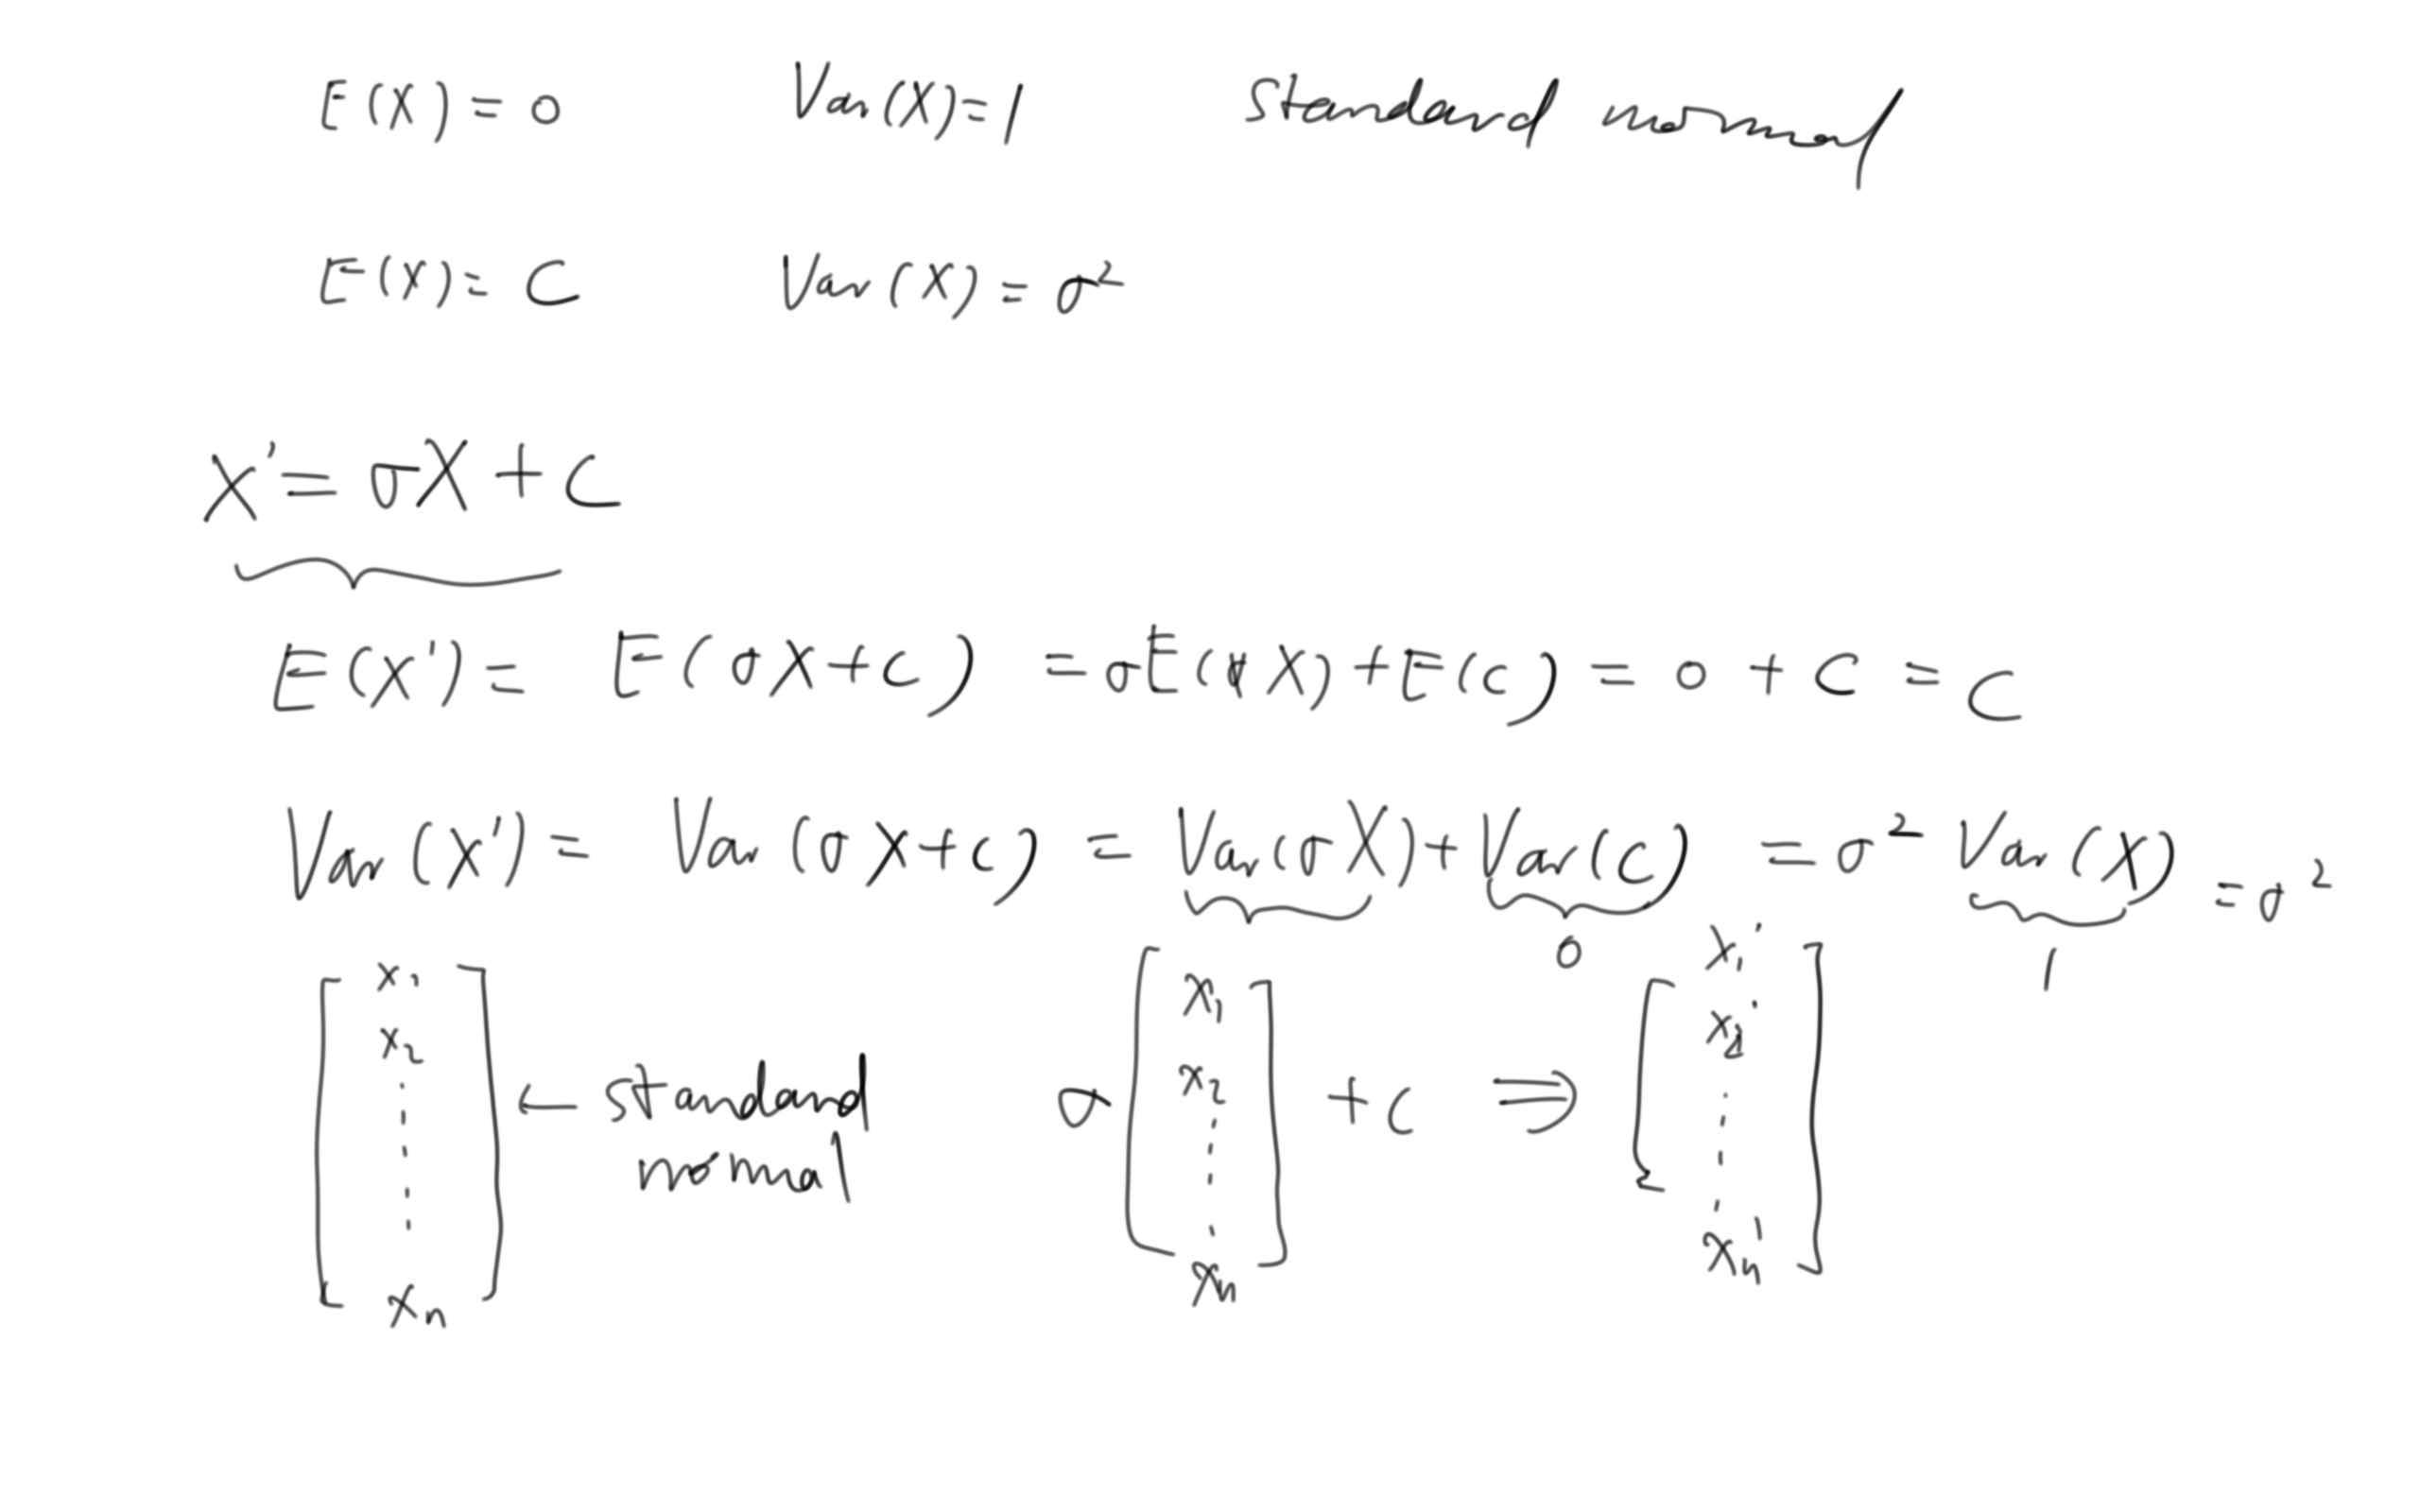 E(X) = 0 Var(X) = 1 standard normal
E(X) = C Var(X) = σ²
X' = σX + C
E(X') = E(σX + c) = σE(X) + E(c) = 0 + C = C
Var(X') = Var(σX + c) = Var(σX) + Var(c) = σ² Var(X) = σ²
0 1
[ x₁ x₂ ⋮ xₙ ] ← standard normal σ [ x₁ x₂ ⋮ xₙ ] + c ⇒ [ x₁' x₂' ⋮ xₙ' ]